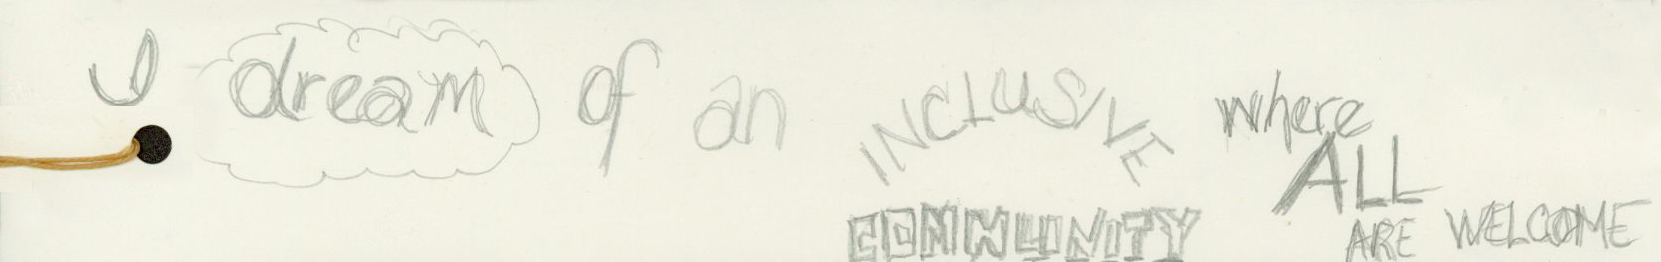 I dream of an INCLUSIVE
COMMUNITY
where
ALL
ARE WELCOME